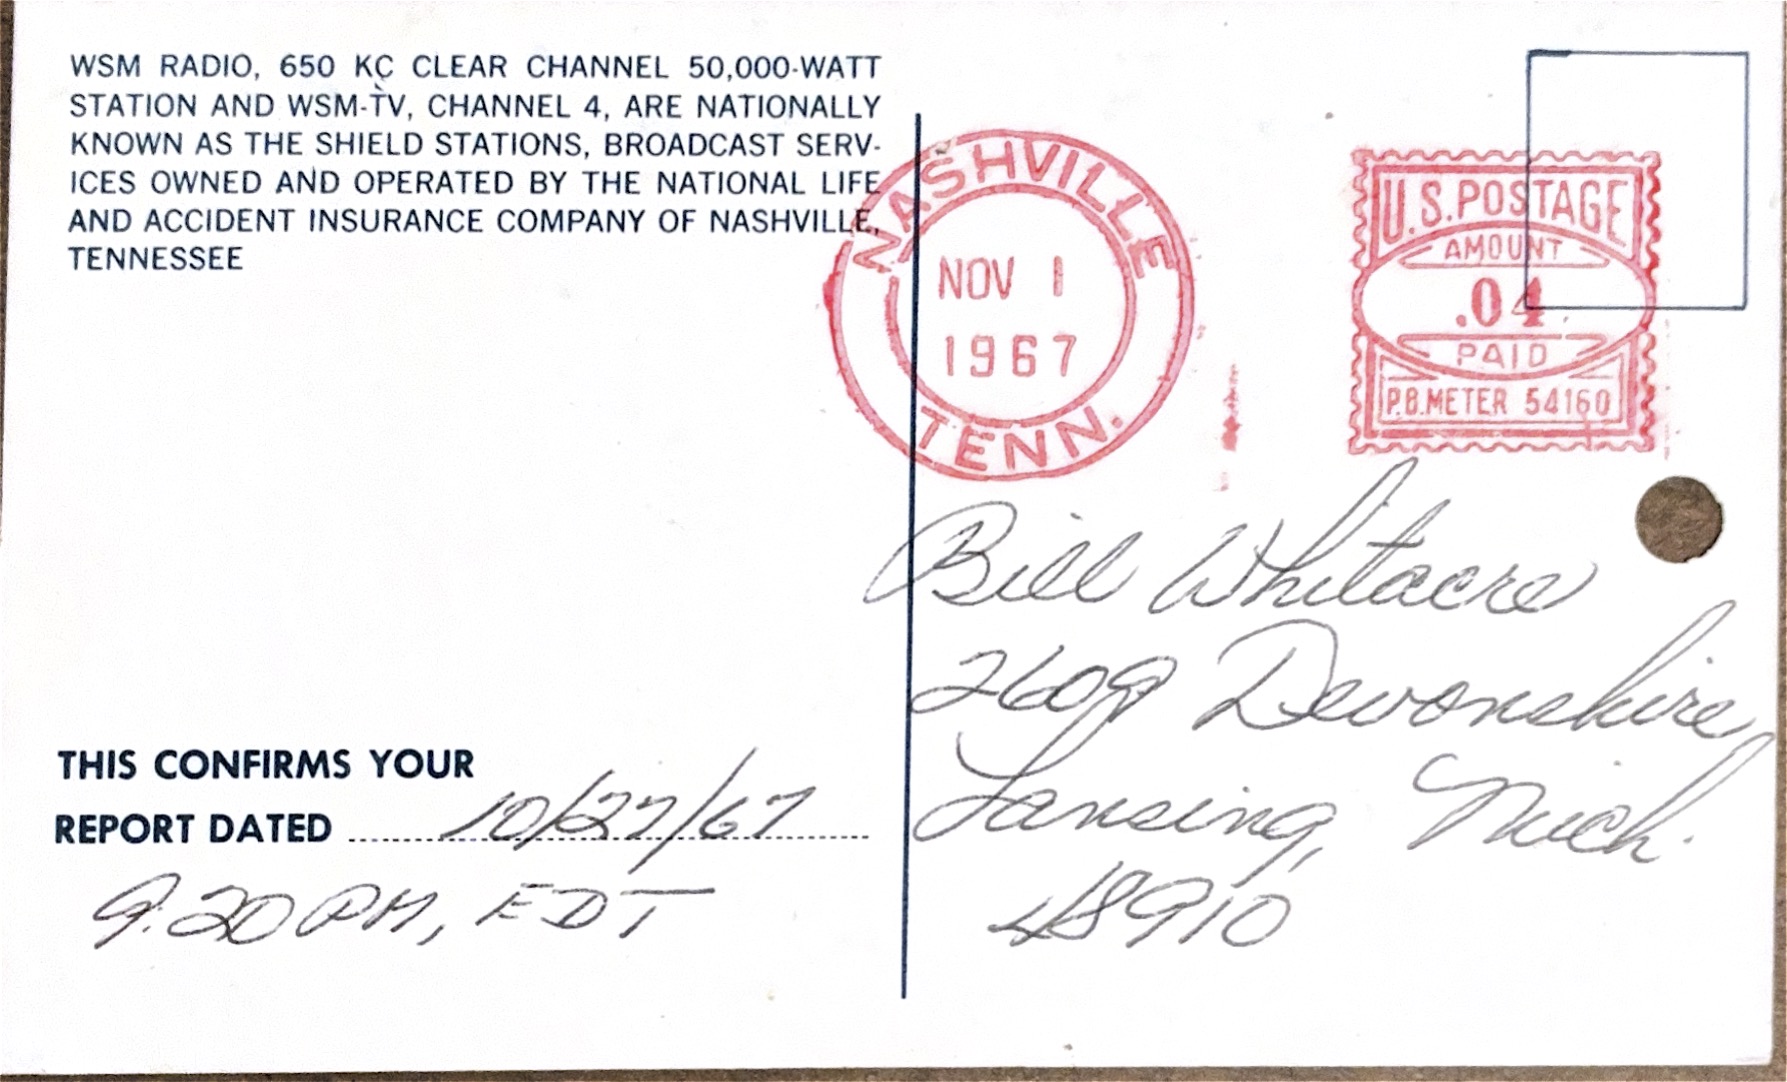 WSM RADIO, 650 KC CLEAR CHANNEL 50,000-WATT
STATION AND WSM-TV, CHANNEL 4, ARE NATIONALLY
KNOWN AS THE SHIELD STATIONS, BROADCAST SERV-
ICES OWNED AND OPERATED BY THE NATIONAL LIFE
AND ACCIDENT INSURANCE COMPANY OF NASHVILLE,
TENNESSEE
NASHVILLE
NOV 1
1967
TENN.
U.S. POSTAGE
AMOUNT
.04
PAID
P.B. METER 54160
THIS CONFIRMS YOUR
REPORT DATED 10/27/67
9:20 PM, EDT
Bill Whitacre
2609 Devonshire
Lansing, Mich.
48910